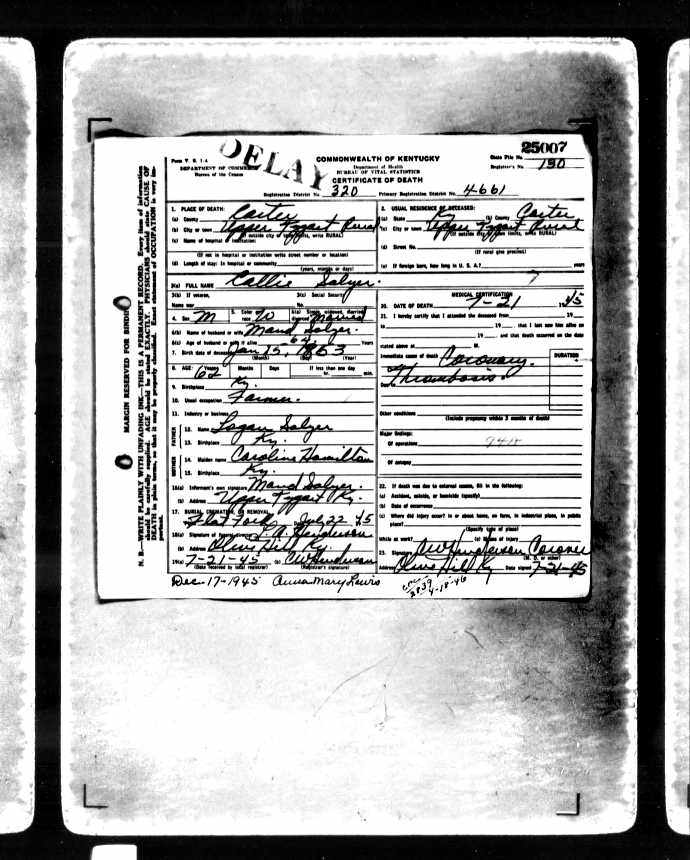 25007
DELAY
Form V. S. 1-A
COMMONWEALTH OF KENTUCKY
State File No.
DEPARTMENT OF COMMERCE
Department of Health
Registrar's No. 190
Bureau of the Census
BUREAU OF VITAL STATISTICS
CERTIFICATE OF DEATH
Registration District No. 320 Primary Registration District No. 4661
N. B.—WRITE PLAINLY WITH UNFADING INK—THIS IS A PERMANENT RECORD. Every item of information
should be carefully supplied. AGE should be stated EXACTLY. PHYSICIANS should state CAUSE OF
DEATH in plain terms, so that it may be properly classified. Exact statement of OCCUPATION is very im-
portant.
MARGIN RESERVED FOR BINDING
1. PLACE OF DEATH:
(a) County Carter
(b) City or town Upper Tygart Rural
(If outside city or town limits, write RURAL)
(c) Name of hospital or institution:
(If not in hospital or institution write street number or location)
(d) Length of stay: In hospital or community
(years, months or days)
2. USUAL RESIDENCE OF DECEASED:
(a) State Ky (b) County Carter
(c) City or town Upper Tygart Rural
(If outside city or town limits, write RURAL)
(d) Street No.
(If rural give precinct)
(e) If foreign born, how long in U. S. A.? years
3(a) FULL NAME Callie Salyer.
3(b) If veteran, 3(c) Social Security
Name war No.
4. Sex M 5. Color or race W 6(a) Single, widowed, married, divorced Married
6(b) Name of husband or wife Maud Salyer.
6(c) Age of husband or wife if alive 62 Years
7. Birth date of deceased Jan 15, 1863
(Month) (Day) (Year)
8. AGE: Years Months Days If less than one day
62 hr. min.
9. Birthplace Ky.
10. Usual occupation Farmer.
11. Industry or business
FATHER
12. Name Logan Salyer
13. Birthplace Ky.
MOTHER
14. Maiden name Caroline Hamilton
15. Birthplace Ky.
16(a) Informant's own signature Maud Salyer.
(b) Address Upper Tygart Ky.
17. BURIAL, CREMATION, OR REMOVAL
Flat Fork July 22 45
18(a) Signature of funeral director J. A. Henderson
(b) Address Olive Hill, Ky.
19(a) 7-21-45 (b) CW Henderson
(Date received by local registrar) (Registrar's signature)
MEDICAL CERTIFICATION
20. DATE OF DEATH 7-21 1945
21. I hereby certify that I attended the deceased from 19
to 19 that I last saw him alive on
19 and that death occurred on the date
stated above at M.
Immediate cause of death Coronary DURATION
Due to Thrombosis.
Other conditions
(Include pregnancy within 3 months of death)
Major findings:
Of operations 94a
Of autopsy
22. If death was due to external causes, fill in the following:
(a) Accident, suicide, or homicide (specify)
(b) Date of occurrence
(c) Where did injury occur? in or about home, on farm, in industrial place, in public
place?
(Specify type of place)
While at work? (e) Means of injury
23. Signature CW Henderson Coroner
(M. D. or other)
Address Olive Hill Ky Date signed 7-21-45
Dec-17-1945 Anna Mary Lewis
2839
4-18-46